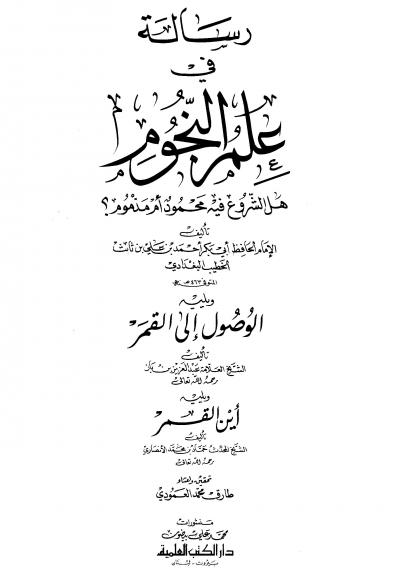 رسالة
في
علم النجوم
هل الشروع فيه محمود أم مذموم؟
تأليف
الإمام الحافظ أبي بكر أحمد بن علي بن ثابت
الخطيب البغدادي
المتوفى ٤٦٣ هـ
ويليه
الوصول إلى القمر
تأليف
الشيخ العلامة عبد العزيز بن باز
رحمه الله تعالى
ويليه
أين القمر
تأليف
الشيخ المحدث حماد بن محمد الأنصاري
رحمه الله تعالى
تحقيق واعتناء
طارق محمد العمودي
منشورات
محمد علي بيضون
دار الكتب العلمية
بيروت - لبنان